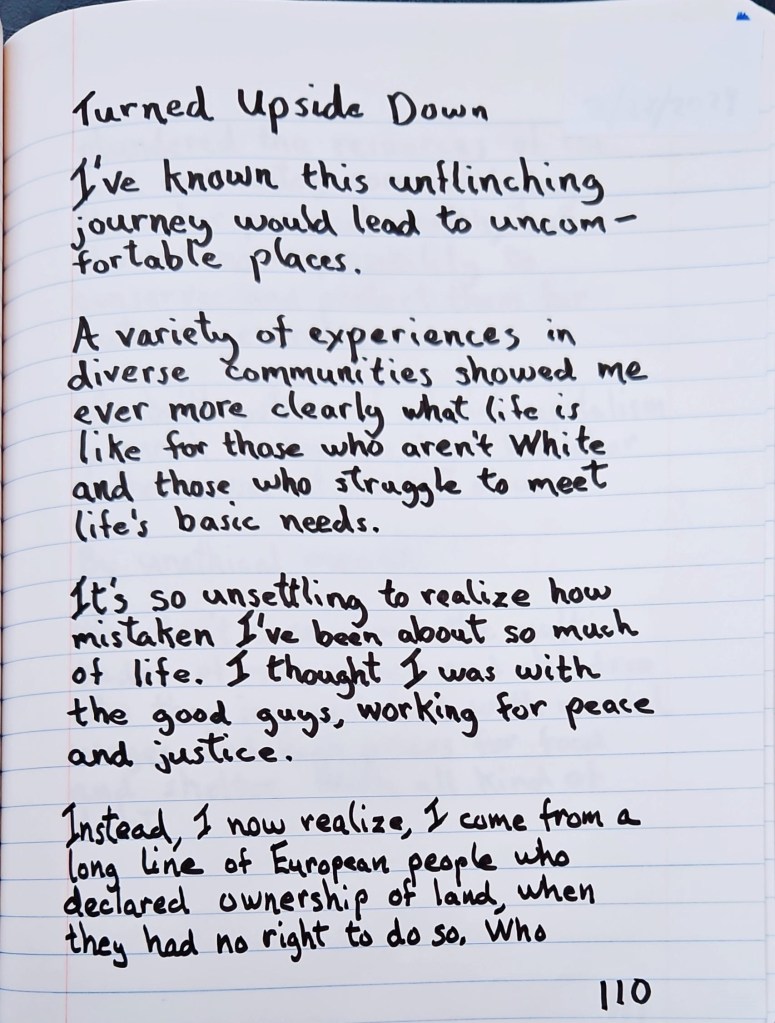 Turned Upside Down
I've known this unflinching
journey would lead to uncom-
fortable places.
A variety of experiences in
diverse communities showed me
ever more clearly what life is
like for those who aren't White
and those who struggle to meet
life's basic needs.
It's so unsettling to realize how
mistaken I've been about so much
of life. I thought I was with
the good guys, working for peace
and justice.
Instead, I now realize, I come from a
long line of European people who
declared ownership of land, when
they had no right to do so. Who
110